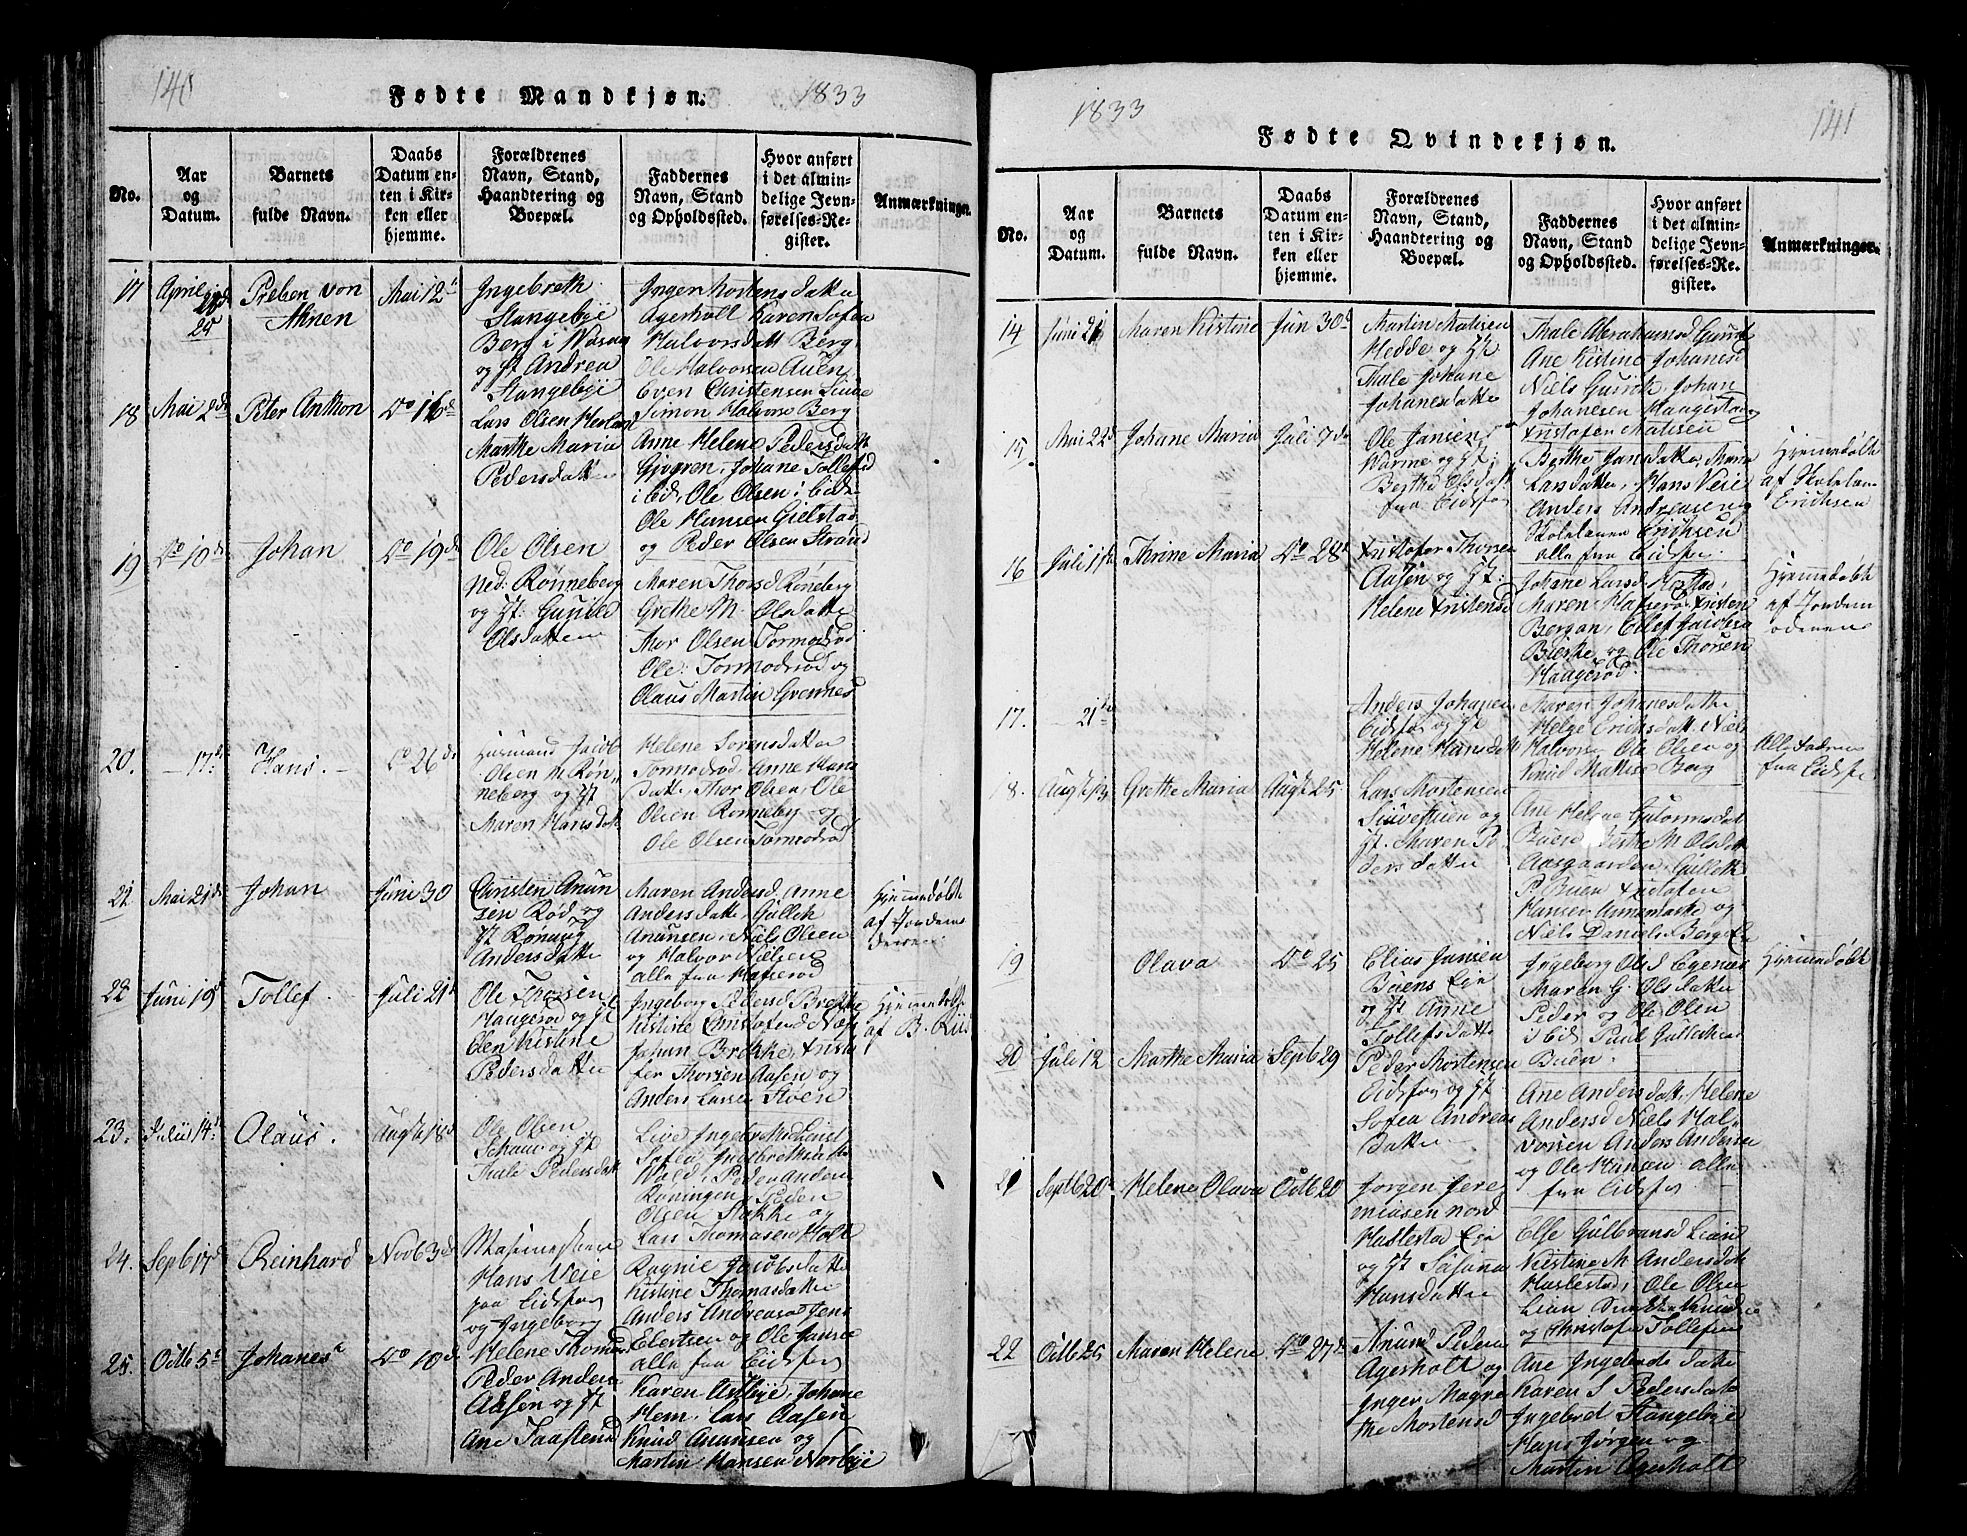 140
Fødte Mandkjøn.
1833
No.
Aar og Datum.
Barnets fulde Navn.
Daabs Datum enten i Kirken eller hjemme.
Forældrenes Navn, Stand, Haandtering og Boepæl.
Faddernes Navn, Stand og Opholdssted.
Hvor anført i det almindelige Jevnførelses-Register.
Anmærkninger.
17
April
25
Preben von
Ahnen
Mai 12
Ingebreth
Stangebye
Berg i
og Hst Andrea
Stangebye
Inger Mortensdatter
Agerholt Karen Sofea
Halvorsdatt Berg,
Ole Halvorsen Auen,
Even Christensen
Simon Halvors Berg
18
Mai 2d
Peter Anthon
Do 16d
Lars Olsen
Marthe Maria
Pedersdatter
Anne Helene Pedersdatter
Johane Tollefsd
ibid, Ole Olsen ibid
Ole Hansen Gielstad
og Peder Olsen Strand
19
Do 10d
Johan
Do 19d
Ole Olsen
ned: Rønneberg
og Hst: Gunild
Olsdatter
Maren Thorsd Røneberg
Grethe M. Olsdatter
Thor Olsen Tormodsrød
Ole: Tormodsrød og
Olaus Martin Grennes
20.
17d
Hans.
Do 26d
Huusmand Jacob
Olsen M Røn-
neberg og Hst
Maren Hansdatt
Helene Sorensdatter
Tormodsrød, Anne Hans
datter, Thor Olsen, Ole
Olsen Rønneby og
Ole Olsen Tormodsrød
21
Mai 21d
Johan
Junie 30
Christen Anun
sen Rød og
Hst Rønaug
Andersdatter
Maren Andersd, Anne
Andersdatter, Gullek
Anunsen, Niels Olsen
og Halvor Nielsen
alle fra Hafserød
Hjemmedøbt
af Jordemo
deren
22
Juni 19d
Tollef.
Juli 21d
Ole Thorsen
Haugerød og Hst
Elen Kistine
Pedersdatter
Ingeborg Pedersd Brekke
Kistine Christofersd Næss
Johan Brekke, Kristo
fer Thorsen Aasen og
Anders Larsen
Hjemmedøbt
af B.
23.
Julii 14d
Olaus.
Augst 18d
Ole Olsen
og Hst
Thale Pedersdatt
Live
Sofea Ingebrethsdatter
Wold, Peder Andersen
Røningen, Peder
Olsen Stokke og
Lars Thomasen Holt
24.
Septb 17d
Reinhard
Novb 3d
Hans Veie
paa Eidsfos
og Ingeborg
Helene Thomas
Ragnie Jacobsdatter
Kistine Thomasdatter
Anders Andreasen, Jens
Eilertsen og Ole Jansen
alle fra Eidsfos
25.
Octb 5d
Johanes
Do 10d
Peder Anders
Aasen og Hst
Ane Taastensd
Karen Astbye, Johane
Hem, Lars Aasen
Knud Anunsen og
Martin Hansen Norbye
1833
Fødte Qvindekjøn.
141
No.
Aar og Datum.
Barnets fulde Navn.
Daabs Datum enten i Kirken eller hjemme.
Forældrenes Navn, Stand, Haandtering og Boepæl.
Faddernes Navn, Stand og Opholdssted.
Hvor anført i det almindelige Jevnførelses-Register.
Anmærkninger.
14
Juni 21
Maren Kistine
Jun 30d
Martin Matisen
Hedde og Hst
Thale Johane
Johanesdatter
Thale Abrahamsd
Ane Kistine Johanesd
Niels Johan
Johanesen Haugestad og
Kristofer Matisen
15.
Mai 22d
Johane Maria
Juli 7d
Ole Jansen
Warme og Hst:
Berthe Olsdatt
fra Eidsfos
Berthe Jansdatter, Maria
Larsdatter, Hans Veie
Anders Andreasen og
Skolelærer Erichsen
alle fra Eidsfos.
Hjemmedøbt
af Skolelærer
Erichsen
16
Juli 1
Thrine Maria
Do 28d
Kristofer Thorsen
Aasen og Hst:
Helene Kristensd
Johane Larsd
Maren Hafserø, Kristen
Bergan, Ellef Jacobsen
Bierke og Ole Thorsen
Haugerød.
Hjemmedøbt
af Jordem
oderen
17.
21de
Anders Johansen
Eidsfos og Hst
Helene Hansdatt
Maren Johanesdatter
Helge Erichsdatt, Niels
Halvors, Ole Olsen og
Knud Mathis Berg
Alle Faderne
fra Eidsfos
18.
Augst 13
Grethe Maria
Augst 25
Lars Mortensen
og
Hst. Maren Pe
dersdatter
Ane Helene Gulormsdatt
Buen, M Olsdatt
Aasgaarden, Gullek
P. Buen Kristofer
Hansen og
Niels Daniels. Berg
19
Olava
Do 25
Elias Jansen
Buens Eje
og Hst Anne
Tollefsdatter
Ingeborg Ols Egenæs
Maren G. Olsdatter
Peder og Ole Olen
ibid, Paul Gulleksen
Buen.
Hjemmedøbt
20
Juli 12
Marthe Maria
Septb 29
Peder Mortensen
Eidsfos og Hst
Sofea Andreas
Datter
Ane Andersdatt, Helene
Andersd Niels Hal
vorsen Anders Andersen
og Ole Hansen alle
fra Eidsfos
21
Septb 20d
Helene Olava
Octb 20
Jørgen Jere
miasen nord
Haslestad Eje
og Hst
Hansdatter
Else Gulbransd Lian
Kistine M Andersdatt
Haslestad, Ole Olsen
Lian Knudsen
og Christofer Tollefsen
22
Octb 25
Maren Helene
Do 27d
Anund Peders
Agerholt og
Inger Magre
the Mortensd
Ane Ingebretsdatter
Karen S. Pedersdatt
Ingebret Stangebye
Hans Jørgen og
Martin Agerholt